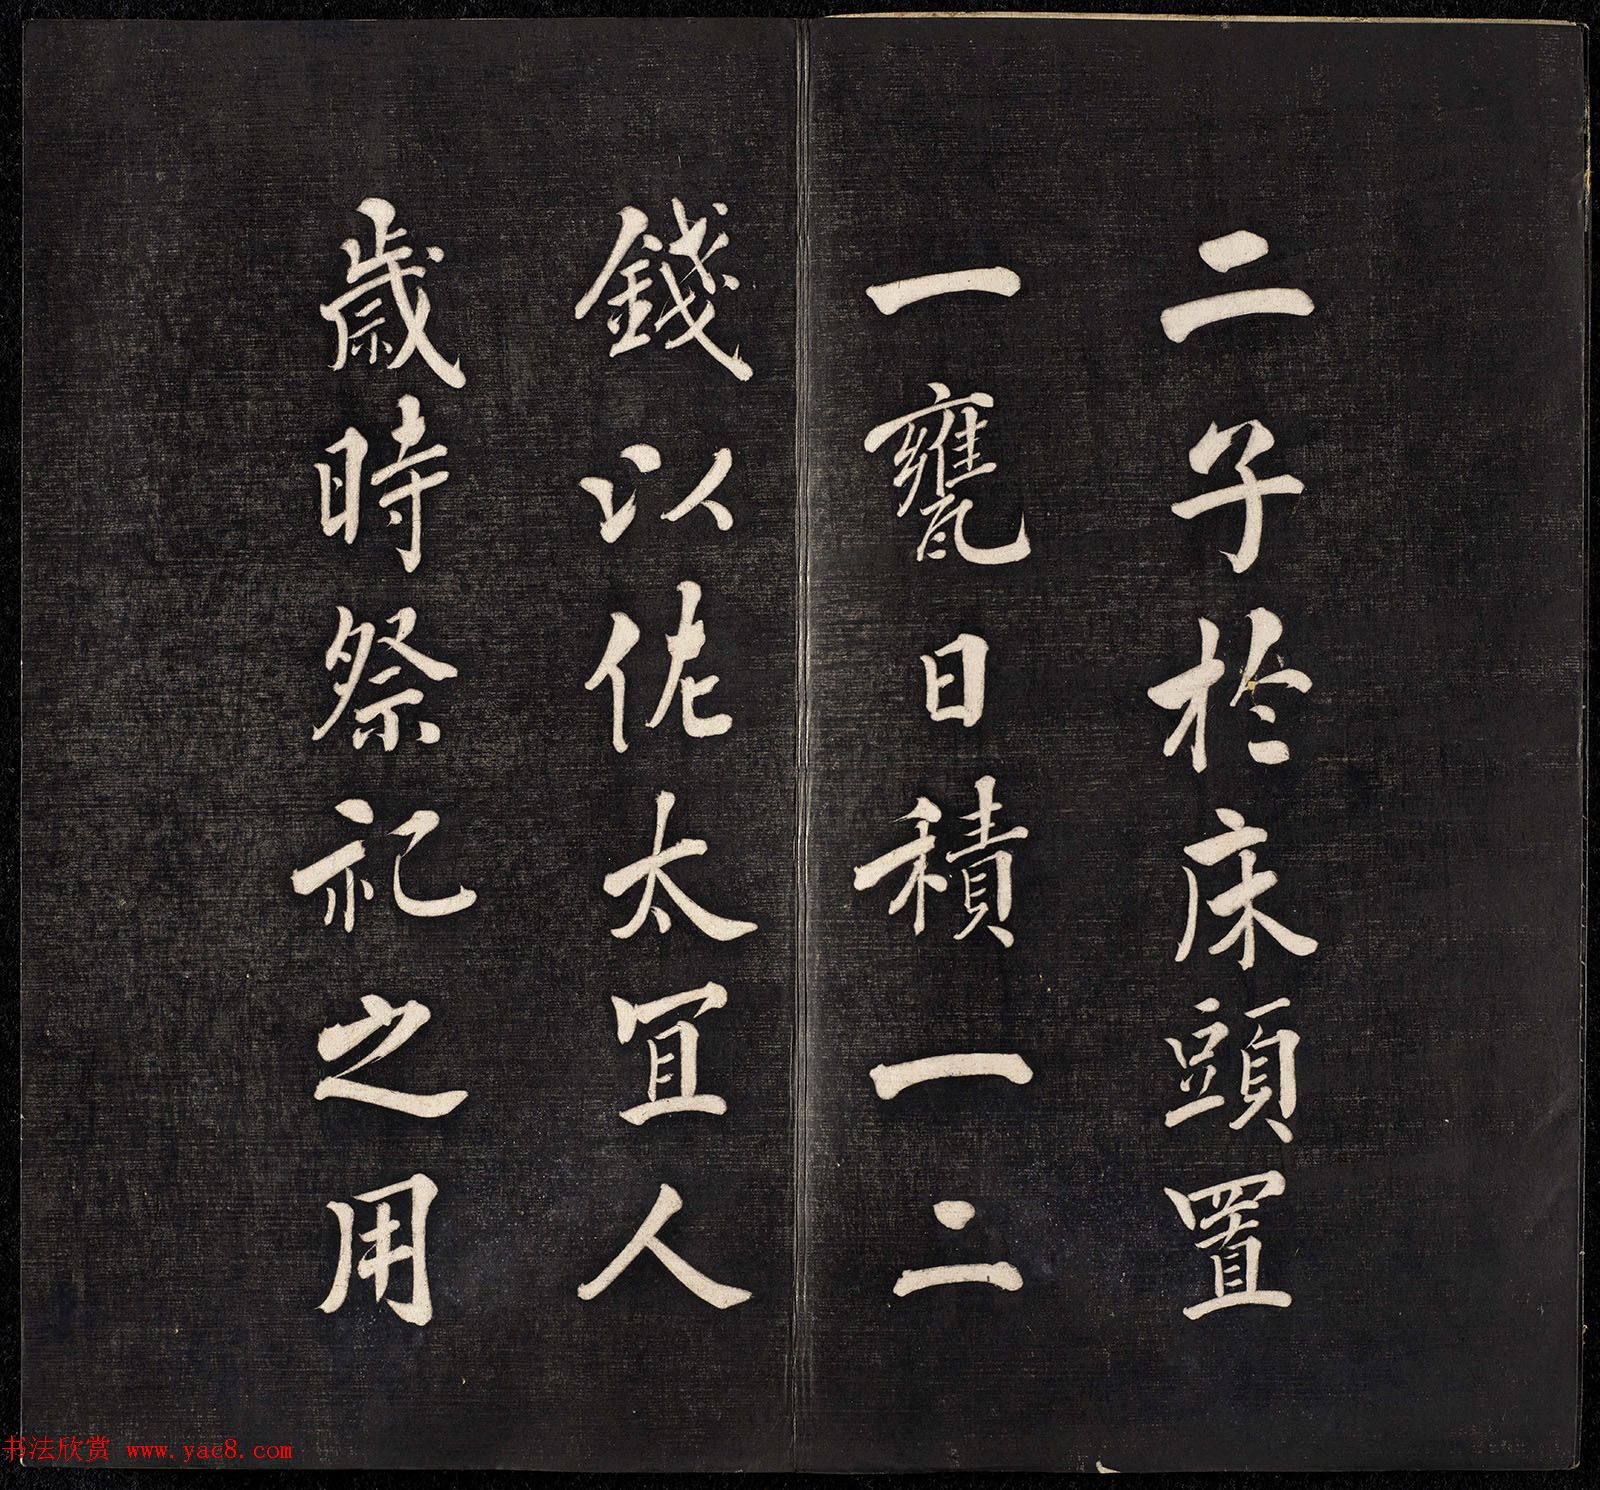 二子於床頭置
一甕日積一二
錢以佐太宜人
歲時祭祀之用
书法欣赏 www.yac8.com